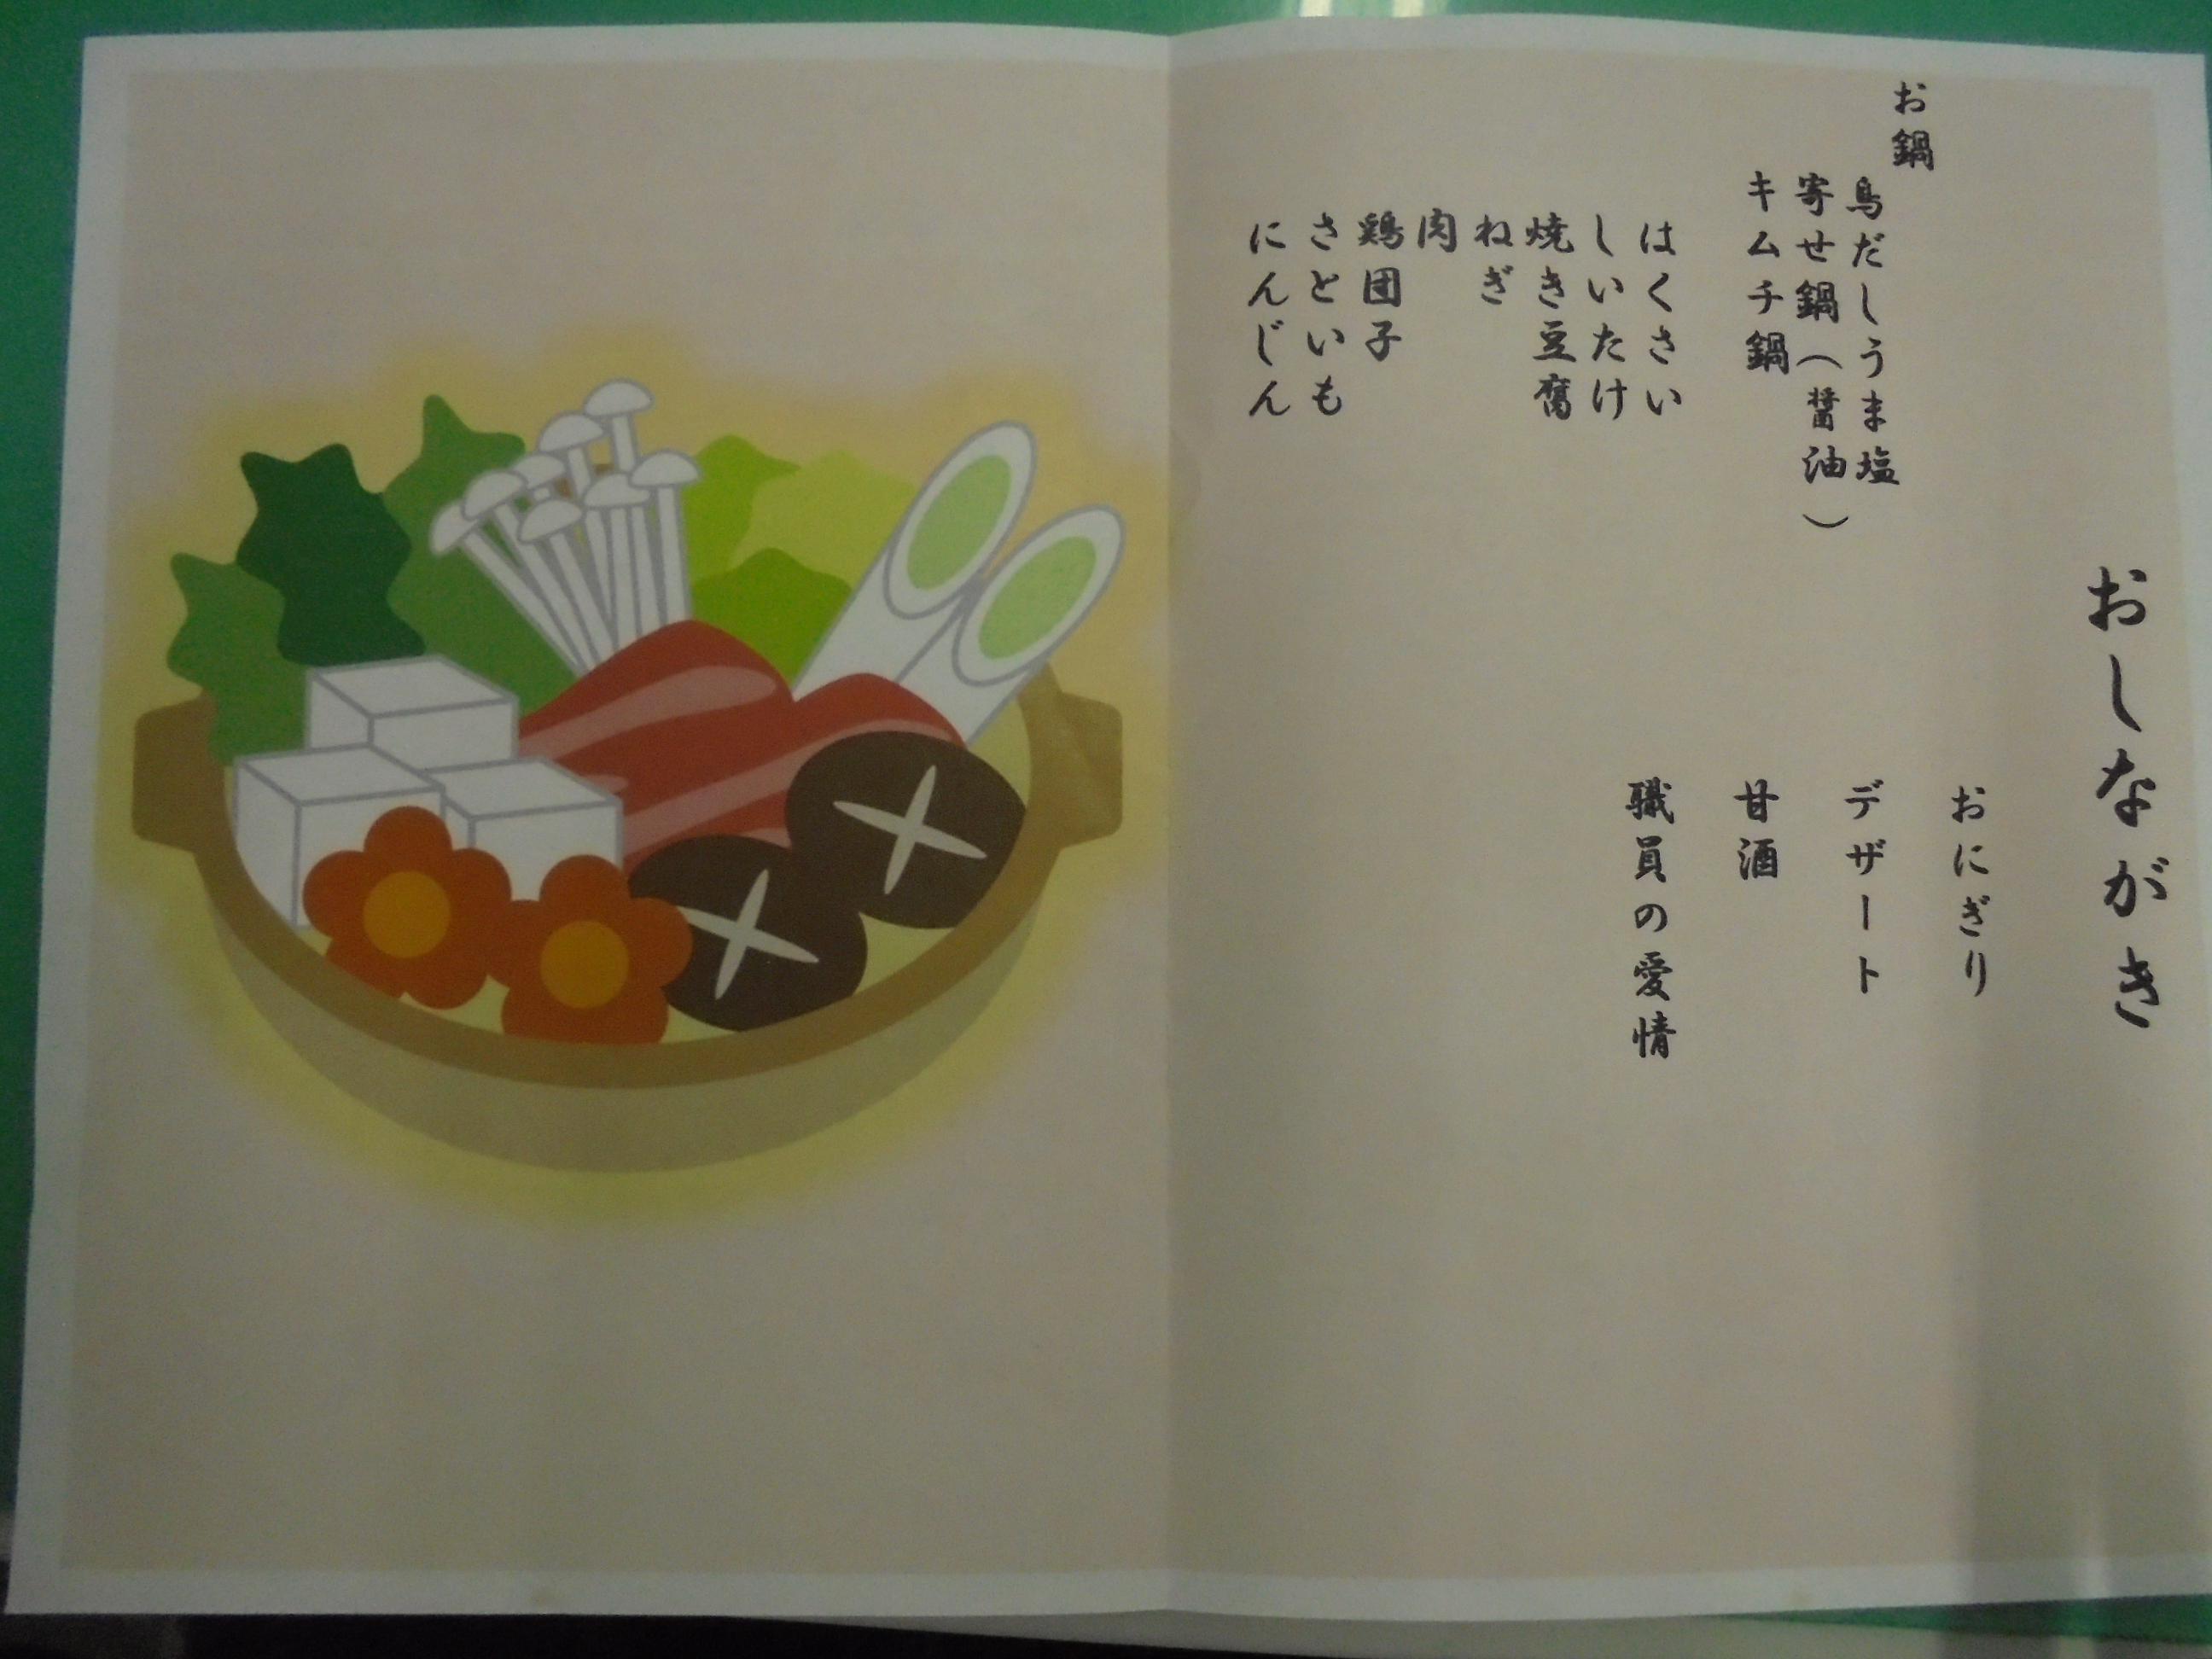 おしながき
お鍋
鳥だしうま塩
寄せ鍋(醤油)
キムチ鍋
はくさい
しいたけ
焼き豆腐
ねぎ
肉
鶏団子
さといも
にんじん
おにぎり
デザート
甘酒
職員の愛情